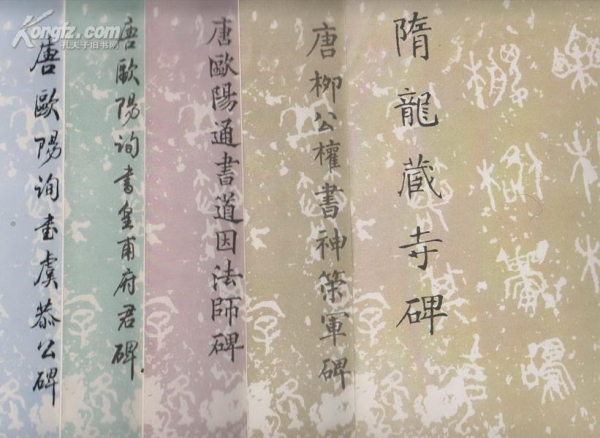 隋龍藏寺碑
唐柳公權書神策軍碑
唐歐陽通書道因法師碑
唐歐陽詢書皇甫府君碑
唐歐陽詢书虞恭公碑
Kongfz.com
孔夫子旧书网